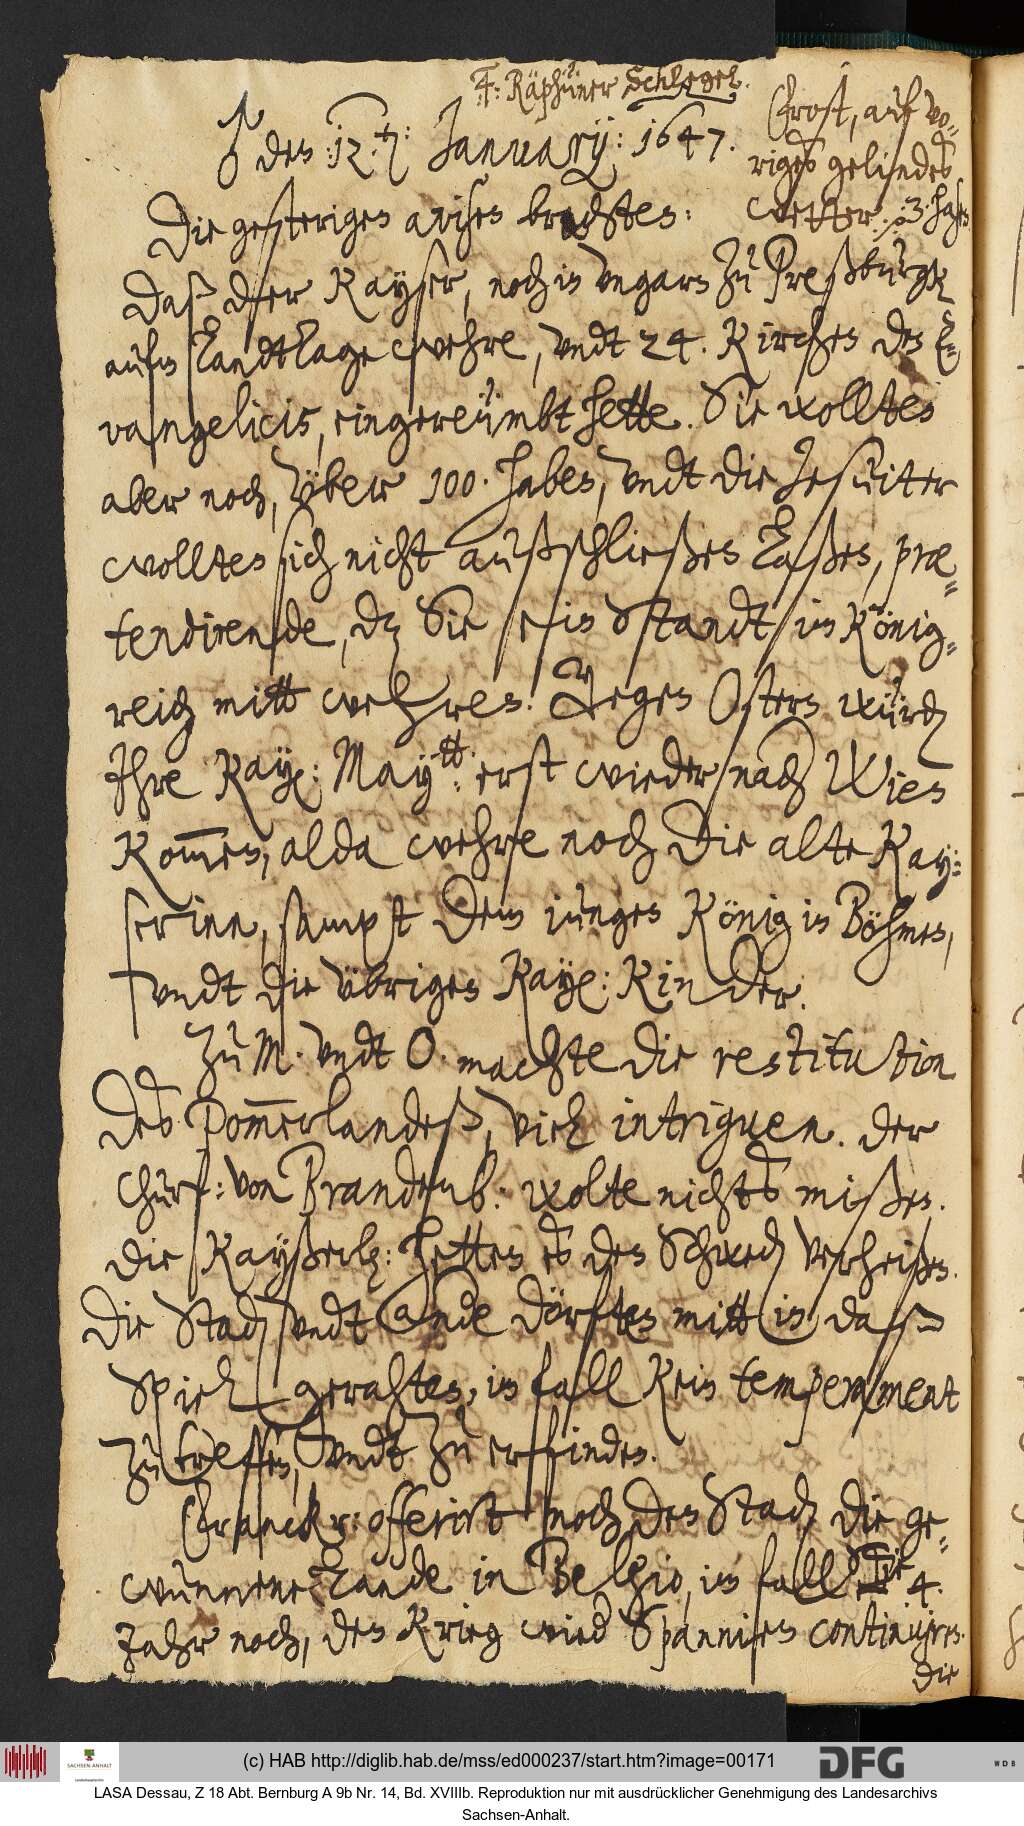 4: Räphüner Schlegel.
♂ den: 12.t: January: 1647.
Frost, auf vo-
riges gelindes
wetter. 3. hasen
Die gesterigen avisen brachten:
Daß der Kayser, noch in Ungarn zu Preßburgk
aufm Landtage wehre, undt 24. Kirchen den E-
vangelicis, eingereümbt hette. Sie wollten
aber noch, über 100. haben, undt die Jesuiter
wollten sich nicht außschließen Laßen, præ-
tendirende, dz Sie ein Standt im König-
reich mitt wehren. Gegen Ostern würden
Ihre Kay: Maytt: erst wieder nach Wien
Kommen, alda wehre noch die alte Kay-
serinn, sampt dem jungen König in Böhmen,
undt die übrigen Kay: Kinder.
Zu M. undt O. machte die restitution
des Pommerlandeß, viel intriguen. der
Churf: von Brandenb: wolte nichts mißen.
die Kayßerl: hetten es den Schweden verheißen.
Die Staden undt Ende dörften mitt in daß
Spiel gerahten, im fall Kein temperament
zu treffen, undt zu erfinden.
Franckr: offerirt noch den Staden die ge-
wunnene Lande in Belgio, im fall Sie 4.
Jahr noch, den Krieg wied Spannien continuiren.
Die
(c) HAB http://diglib.hab.de/mss/ed000237/start.htm?image=00171
SACHSEN-ANHALT
DFG
WDB
LASA Dessau, Z 18 Abt. Bernburg A 9b Nr. 14, Bd. XVIIIb. Reproduktion nur mit ausdrücklicher Genehmigung des Landesarchivs
Sachsen-Anhalt.